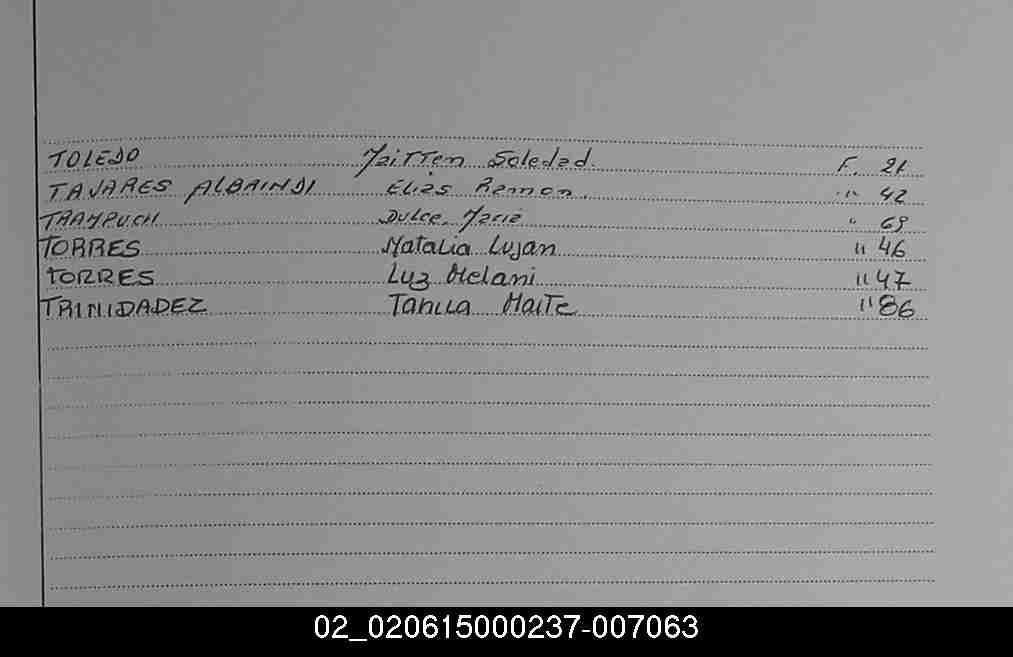 TOLEDO Maitten Soledad. F. 21
TAVARES ALBRINDI Elias Ramon. " 42
TRAMPUCH Dulce Maria " 69
TORRES Natalia Lujan " 46
TORRES Luz Melani " 47
TRINIDADEZ Maite " 86
02_020615000237-007063